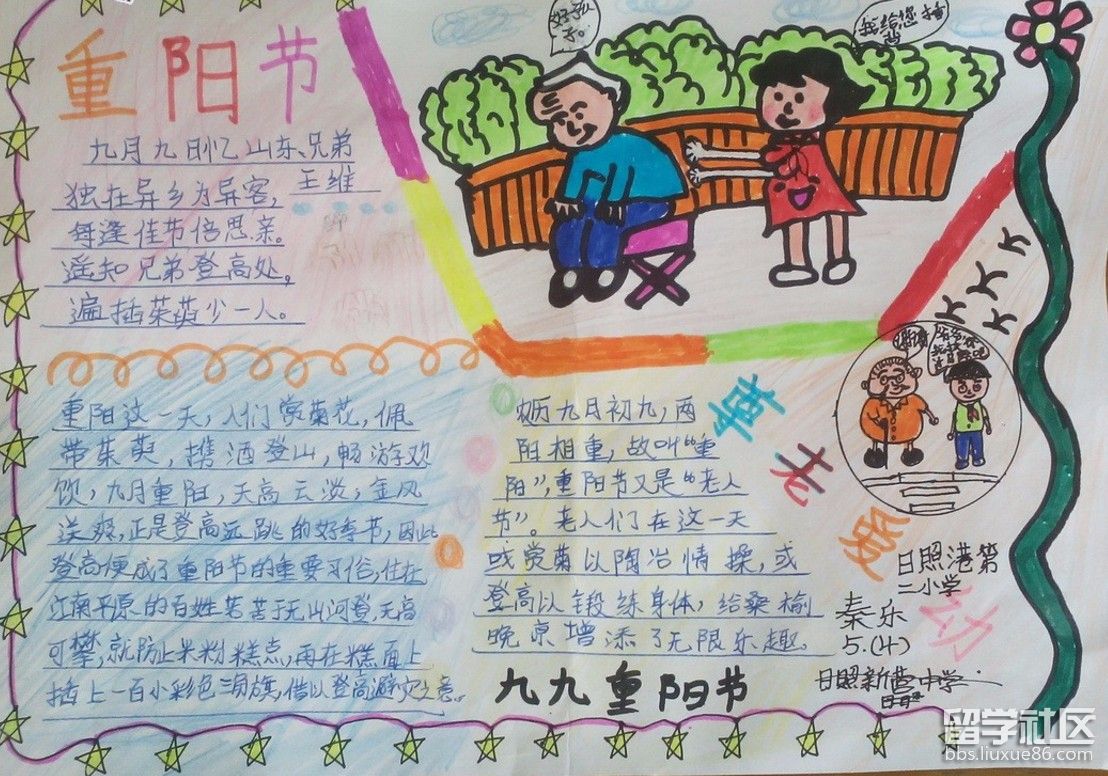 重阳节
九月九日忆山东兄弟
王维
独在异乡为异客,
每逢佳节倍思亲。
遥知兄弟登高处,
遍插茱萸少一人。
我给您捶
背
重阳这一天,人们赏菊花,佩
带茱萸,携酒登山,畅游欢
饮,九月重阳,天高云淡,金风
送爽,正是登高远眺的好季节,因此
登高便成了重阳节的重要习俗,住在
江南平原的百姓苦于无山河登,无高
可攀,就防止米粉糕点,再在糕面上
插上一百小彩色三角旗,借以登高避灾之意。
九月初九,两
阳相重,故叫“重
阳”,重阳节又是“老人
节”。老人们在这一天
或赏菊以陶冶情操,或
登高以锻练身体,给桑榆
晚京增添了无限乐趣。
九九重阳节
尊老爱幼
日照港第
二小学
秦乐
5.(4)
日照新营中学
留学社区
bbs.liuxue86.com